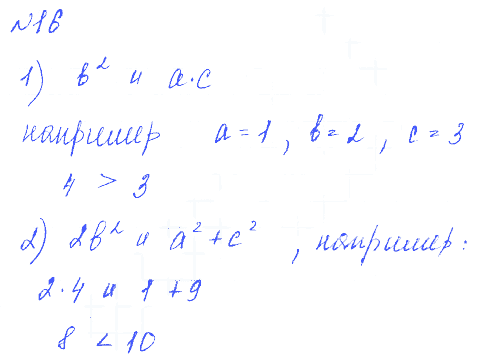 №16
1) b² и a·c
например a=1, b=2, c=3
4 > 3
2) 2b² и a²+c², например:
2·4 и 1+9
8 < 10